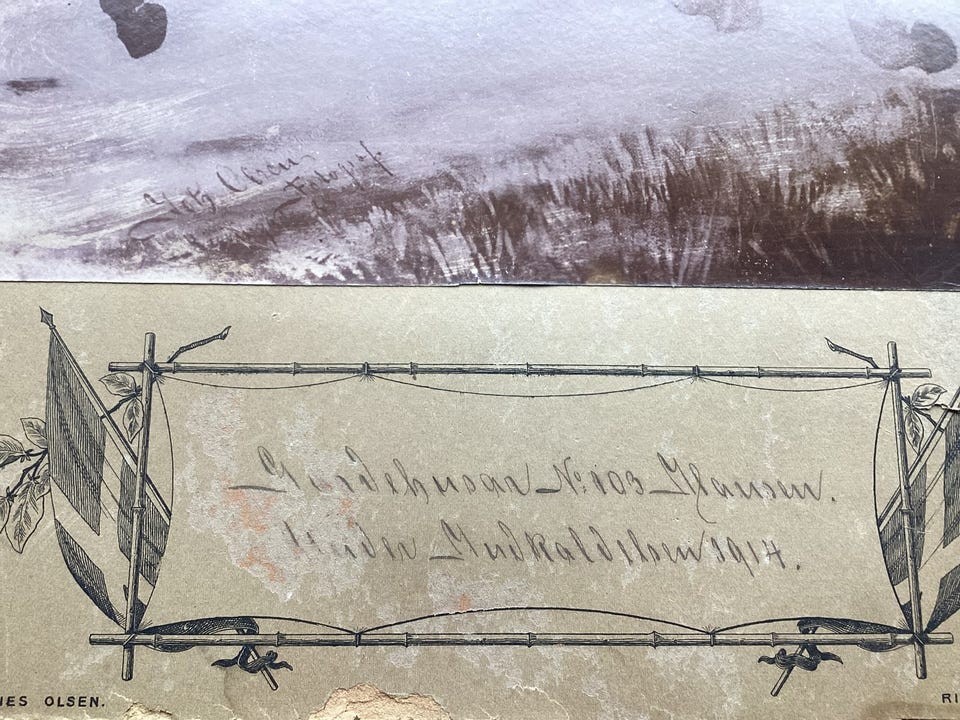 Johs. Olsen
Fotograf.
Gardehusar No. 103 Hansen.
Under Indkaldelsen 1914.
NES OLSEN.
RI